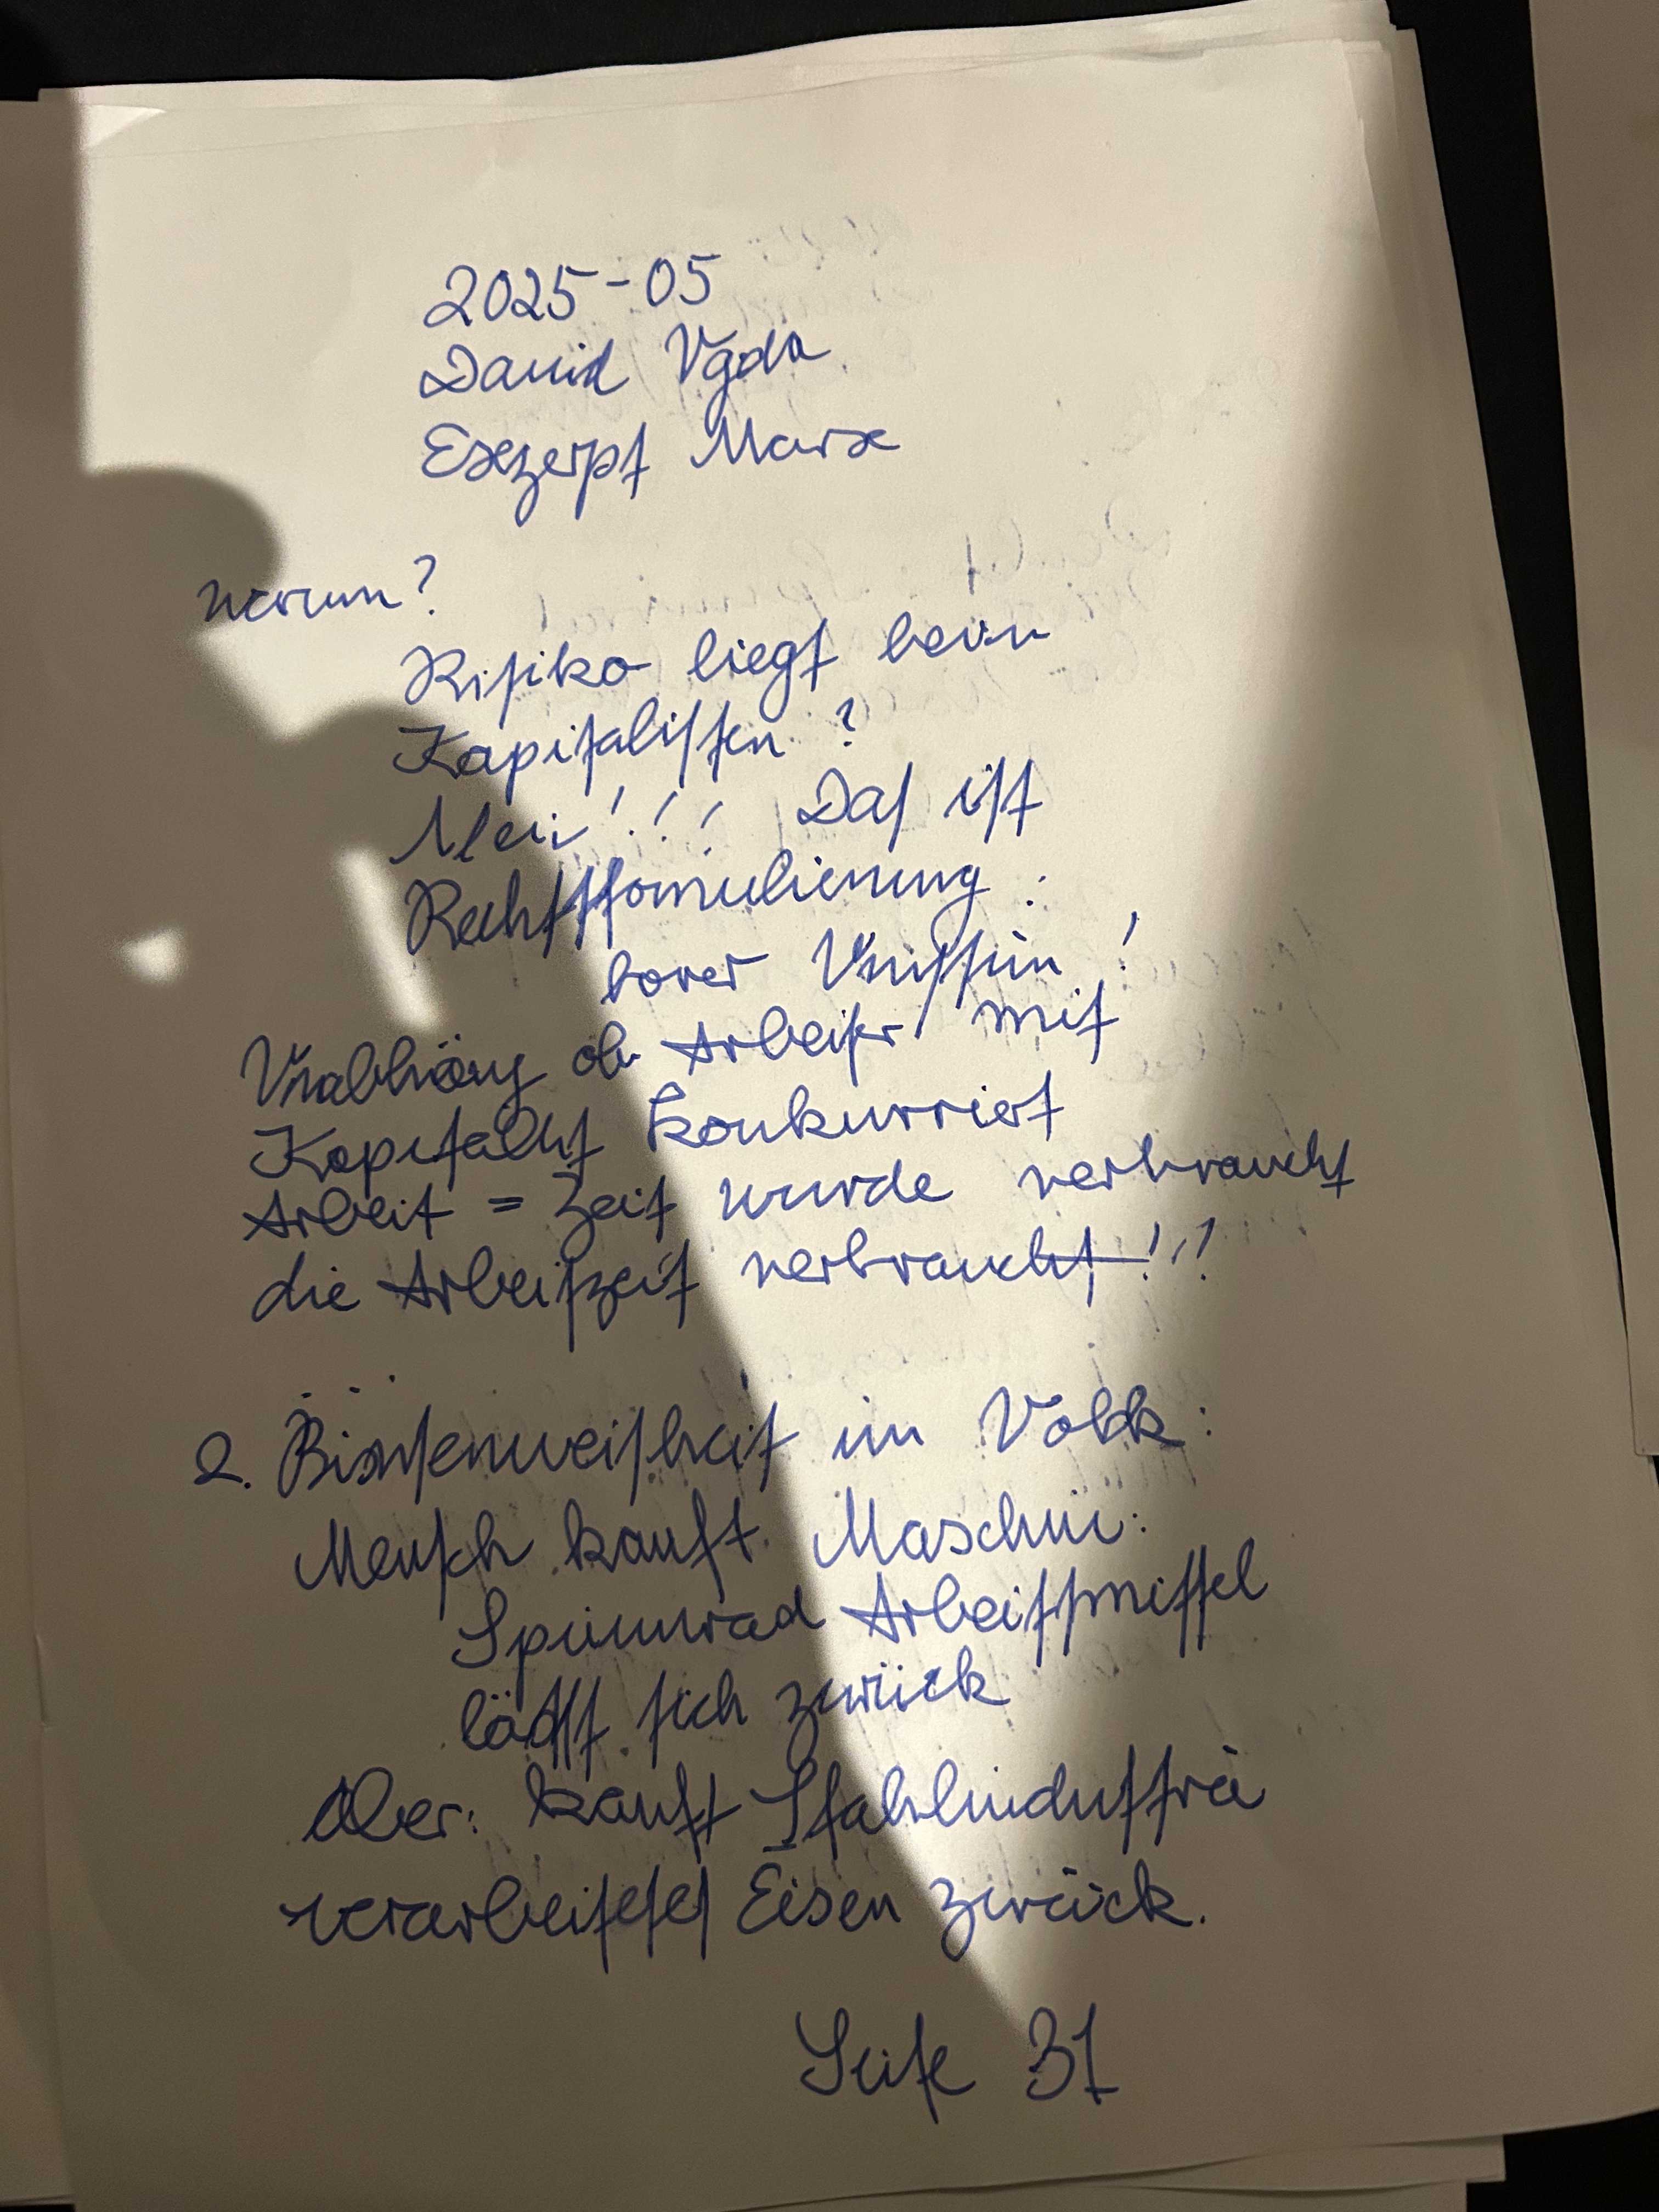 2025-05
David Vgda
Exzerpt Marx
warum?
Risiko liegt beim
Kapitalisten?
Nein!!! Das ist
Rechtsformulierung:
barer Unsinn!
Unabhäng ob Arbeiter mit
Kapitalist konkurriert
Arbeit = Zeit wurde verbraucht
die Arbeitszeit verbraucht!!!
2. Binsenweisheit im Volk:
Mensch kauft Maschin:
Spinnrad Arbeitsmittel
lässt sich zurück
Aber: kauft Stahlindustrie
verarbeitetes Eisen zurück.
Seite 31